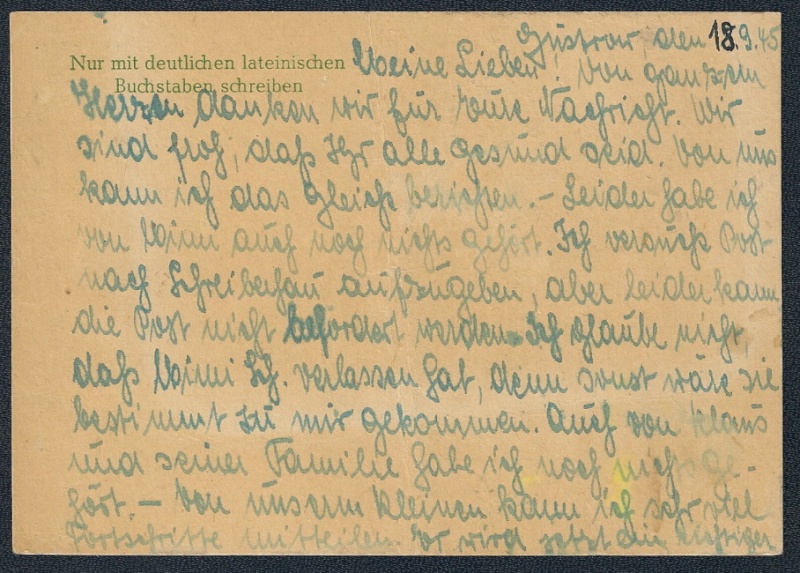 Güstrow, den 18.9.45
Nur mit deutlichen lateinischen
Buchstaben schreiben
Meine Lieben! Von ganzem
Herzen danken wir für Eure Nachricht. Wir
sind froh, daß Ihr alle gesund seid. Von uns
kann ich das Gleiche berichten. – Leider habe ich
von Mimi auch noch nichts gehört. Ich versuche Post
nach Schreiberhau aufzugeben, aber leider kann
die Post nicht befördert werden. Ich glaube nicht,
daß Mimi Sch. verlassen hat, denn sonst wäre sie
bestimmt zu mir gekommen. Auch von Klaus
und seiner Familie habe ich noch nichts ge-
hört. – Von unserm Kleinen kann ich sehr viel
Fortschritte mitteilen. Er wird jetzt ein richtiger